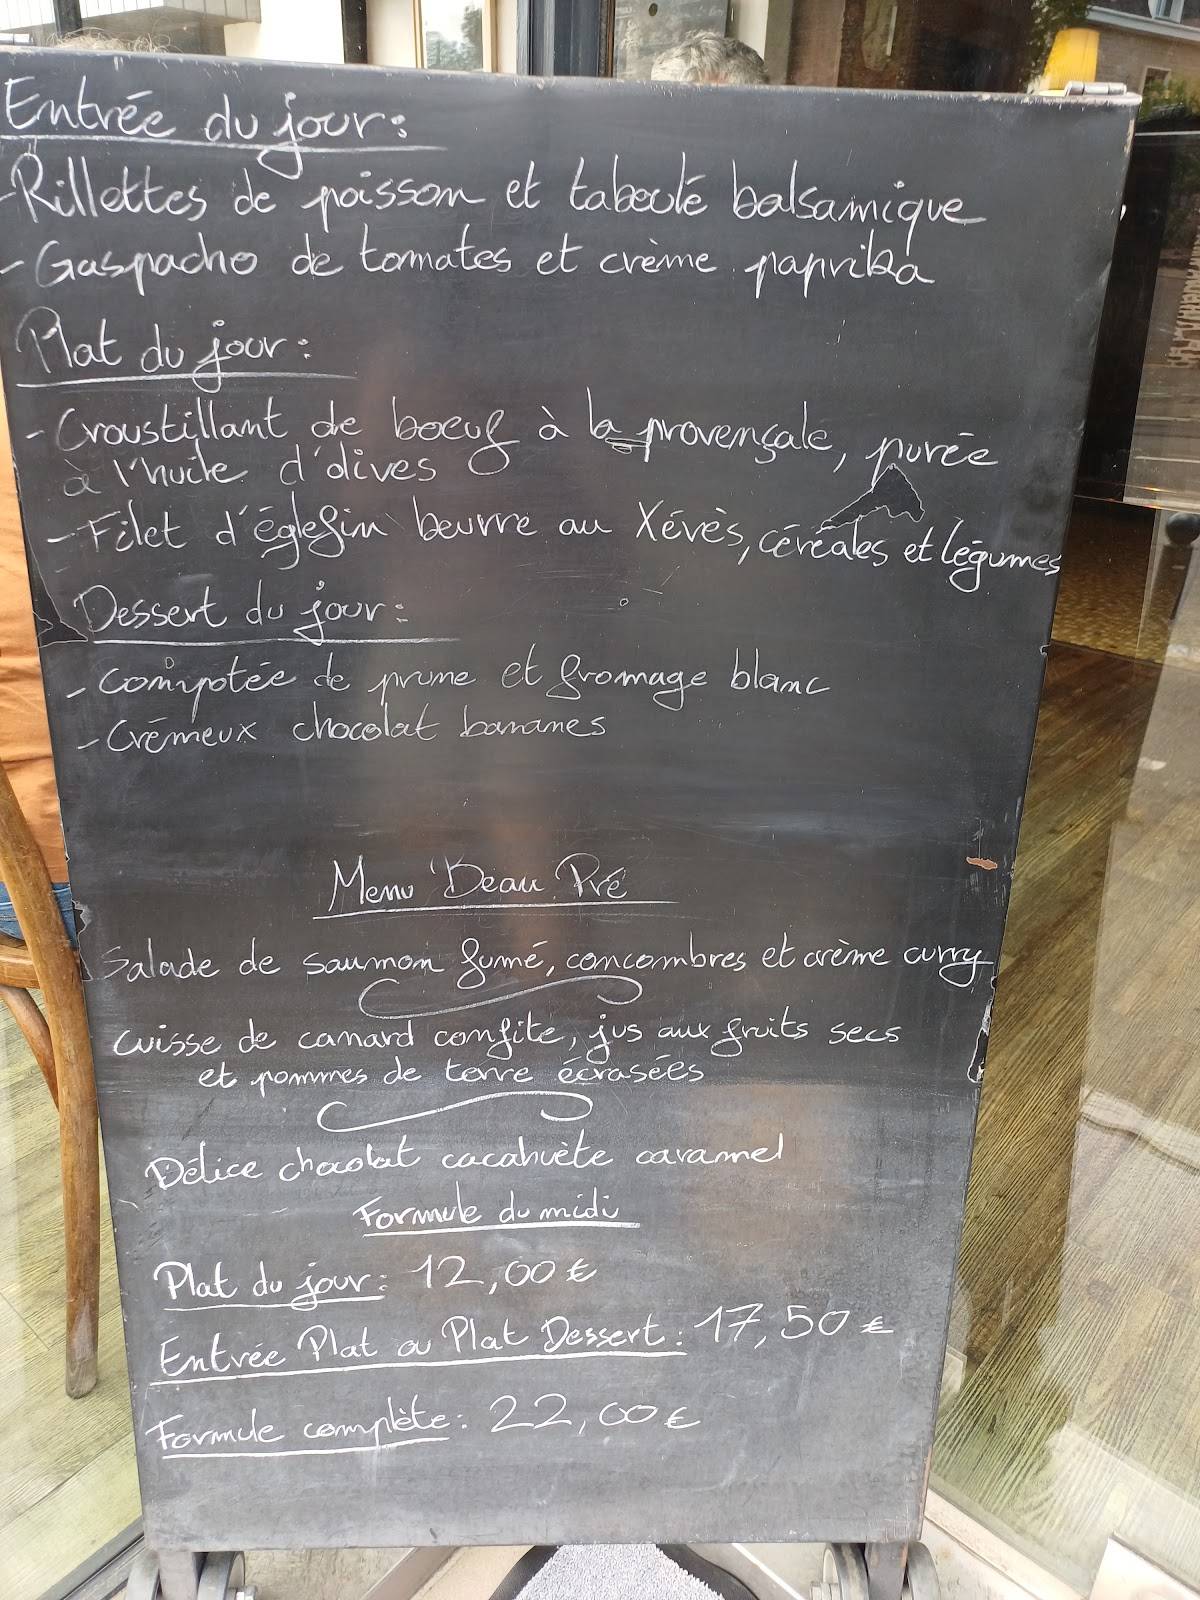 Entrée du jour:
- Rillettes de poisson et taboulé balsamique
- Gaspacho de tomates et crème paprika
Plat du jour:
- Croustillant de boeuf à la provençale, purée
à l'huile d'olives
- Filet d'églefin beurre au Xévès, céréales et légumes
Dessert du jour:
- Compotée de prune et fromage blanc
- Crémeux chocolat bananes
Menu Beau Pré
Salade de saumon fumé, concombres et crème curry
cuisse de canard confite, jus aux fruits secs
et pommes de terre écrasées
Délice chocolat cacahuète caramel
Formule du midi
Plat du jour: 12,00 €
Entrée Plat ou Plat Dessert: 17,50 €
Formule complète: 22,00 €